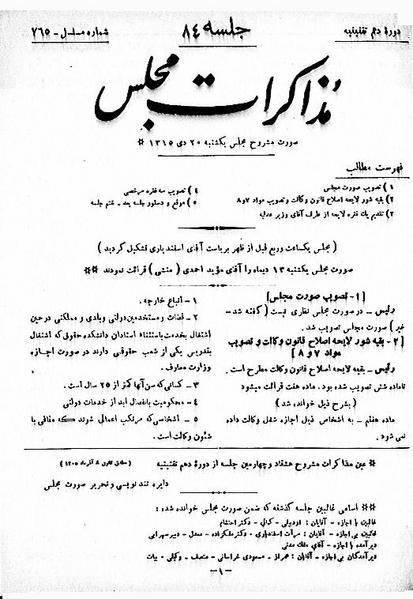 دورهٔ دهم تقنینیه
جلسه ۸۴
شماره مسلسل - ۷۶۵
مذاکرات مجلس
صورت مشروح مجلس یکشنبه ۲۰ دی ۱۳۱۵ *
فهرست مطالب
۱) تصویب صورت مجلس
۲) بقیه شور لایحه اصلاح قانون وکالت و تصویب مواد ۷ و ۸
۳) تقدیم یک فقره لایحه از طرف آقای وزیر عدلیه
۴) تصویب سه فقره مرخصی
۵) موقع و دستور جلسه بعد - ختم جلسه
( مجلس یکساعت و ربع قبل از ظهر بریاست آقای اسفندیاری تشکیل گردید )
صورت مجلس یکشنبه ۱۳ دیماه را آقای مؤید احدی ( منشی ) قرائت نمودند **
[ ۱- تصویب صورت مجلس ]
رئیس - در صورت مجلس نظری نیست ( گفته شد -
خیر ) صورت مجلس تصویب شد.
[ ۲- بقیه شور لایحه اصلاح قانون وکالت و تصویب
مواد ۷ و ۸ ]
رئیس - بقیه لایحه اصلاح قانون وکالت مطرح است.
تاماده شش تصویب شده بود. ماده هفت قرائت میشود
( بشرح ذیل خوانده شد )
ماده هفتم - به اشخاص ذیل اجازه شغل وکالت داده
نمی شود.
۱ - اتباع خارجه.
۲ - قضات و مستخدمین دولتی و بلدی و مملکتی در حین
اشتغال بخدمت باستثناء استادان دانشکده حقوق که اشتغال
بتدریس یکی از شعب حقوقی دارند در صورت اجازه
وزارت معارف.
۳ - کسانی که سن آنها کمتر از ۲۵ سال است.
۴ - محکومیت بانفصال ابد از خدمات دولتی
۵ - اشخاصی که مرتکب اعمالی شوند که منافی با
شئون وکالت است.
* عین مذاکرات مشروح هشتاد و چهارمین جلسه از دورهٔ دهم تقنینیه
دایره تند نویسی و تحریر صورت مجلس
** اسامی غائبین جلسه گذشته که ضمن صورت مجلس خوانده شده :
غائبین با اجازه - آقایان : اردبیلی - کمالی - دکتر احتشام
غائبین بی اجازه - آقایان : مرآت اسفندیاری - دکتر ملکزاده - معدل - دبیر سهرابی
دیرآمده با اجازه - آقای ملک مدنی
دیرآمدگان بی اجازه - آقایان : همراز - مسعودی خراسانی - منصف - وکیلی - بیات
- ۱ -